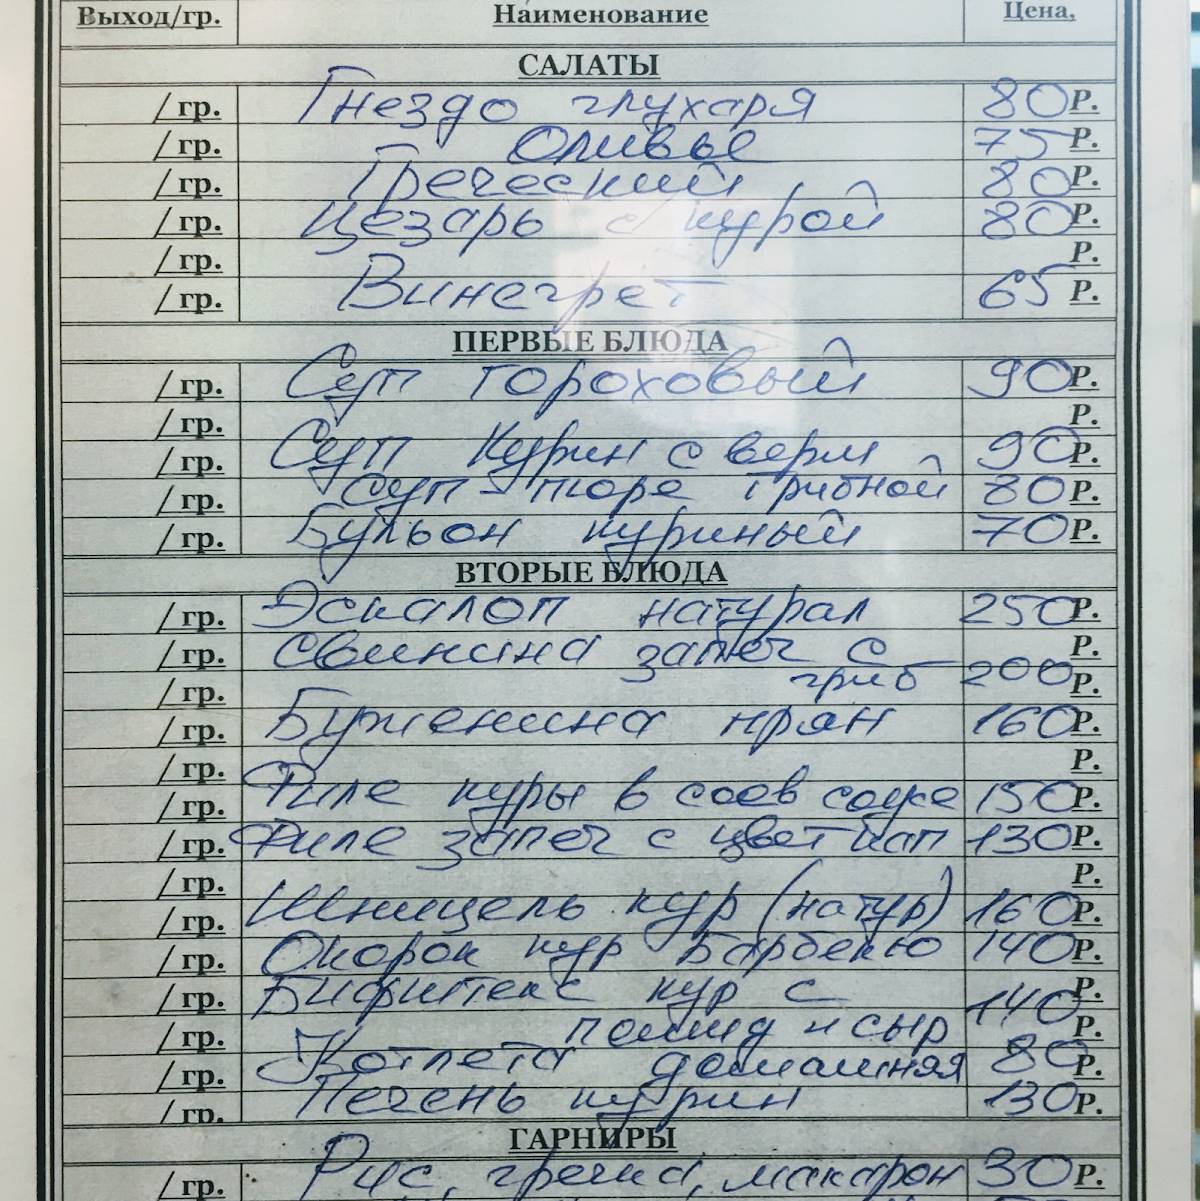 Выход/гр. Наименование Цена,
САЛАТЫ
/ гр. Гнездо глухаря 80 Р.
/ гр. Оливье 75 Р.
/ гр. Греческий 80 Р.
/ гр. Цезарь с курой 80 Р.
/ гр. Р.
/ гр. Винегрет 65 Р.
ПЕРВЫЕ БЛЮДА
/ гр. Суп гороховый 90 Р.
/ гр. Р.
/ гр. Суп курин с верм 90 Р.
/ гр. Суп-пюре грибной 80 Р.
/ гр. Бульон куриный 70 Р.
ВТОРЫЕ БЛЮДА
/ гр. Эскалоп натурал 250 Р.
/ гр. Свинина запеч с Р.
/ гр. гриб 200 Р.
/ гр. Буженина прян 160 Р.
/ гр. Р.
/ гр. Филе куры в соев соусе 150 Р.
/ гр. Филе запеч с цвет кап 130 Р.
/ гр. Р.
/ гр. Шницель кур (натур) 160 Р.
/ гр. Окорок кур Барбекю 140 Р.
/ гр. Бифштекс кур с Р.
/ гр. помид и сыр 140 Р.
/ гр. Котлета домашняя 80 Р.
/ гр. Печень курин 130 Р.
ГАРНИРЫ
/ гр. Рис, гречка, макарон 30 Р.